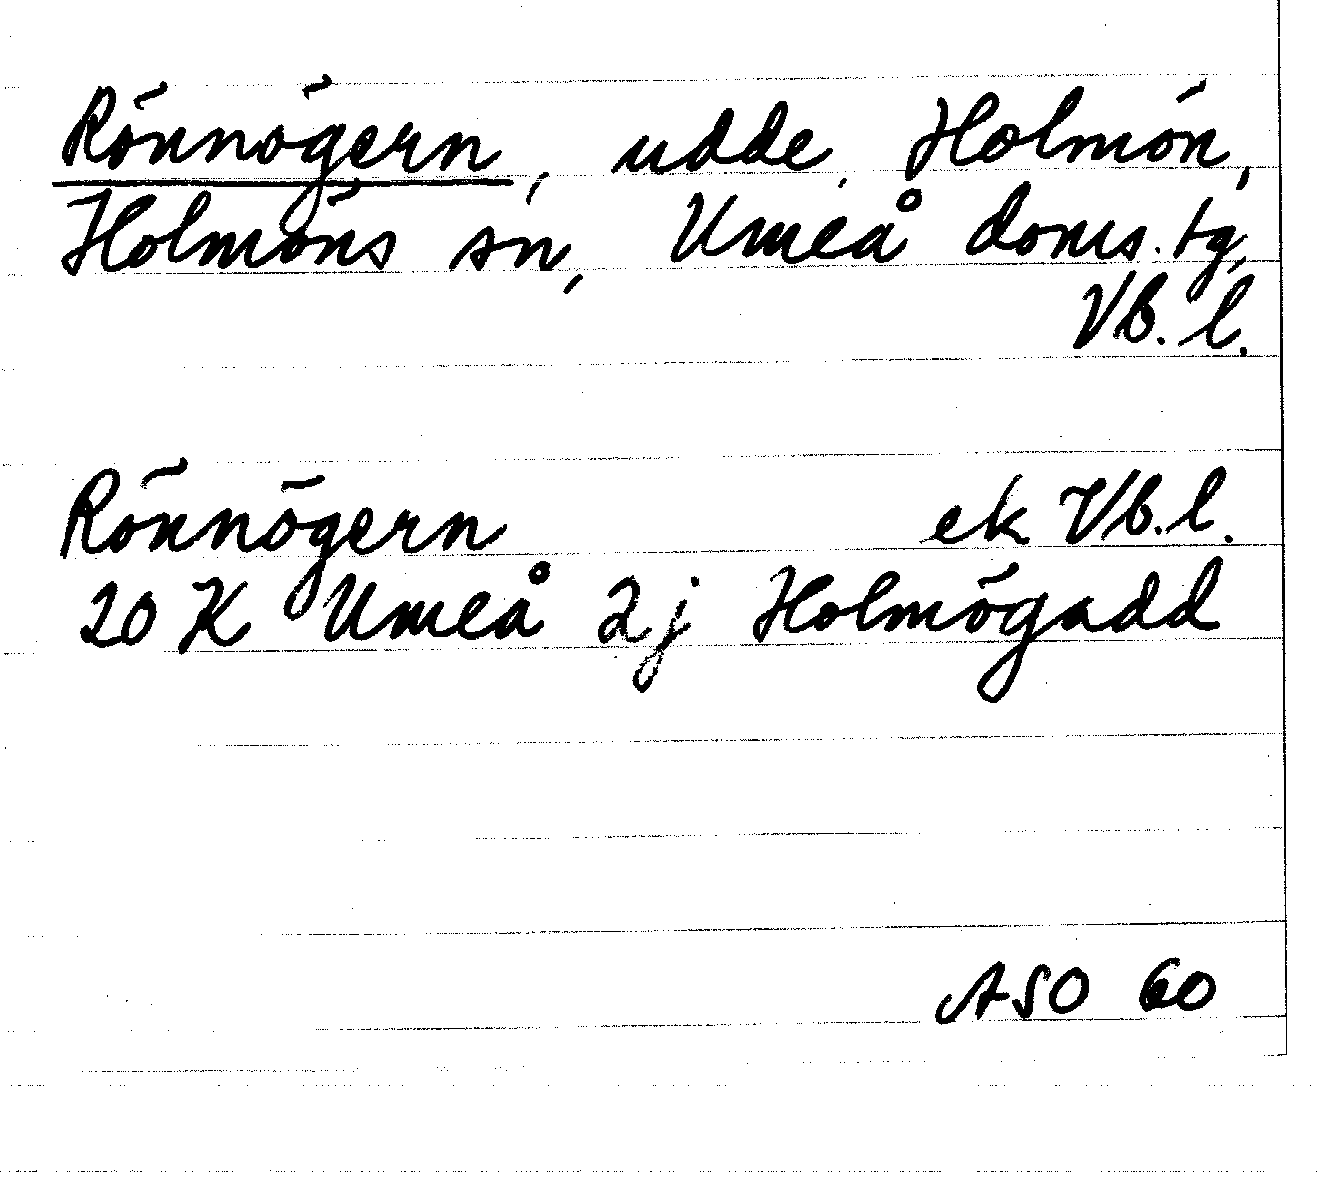 Rönnögern, udde, Holmön,
Holmöns sn, Umeå doms.tg,
Vb. l.
Rönnögern ek Vb. l.
20 K Umeå 2j Holmögadd
ASO 60